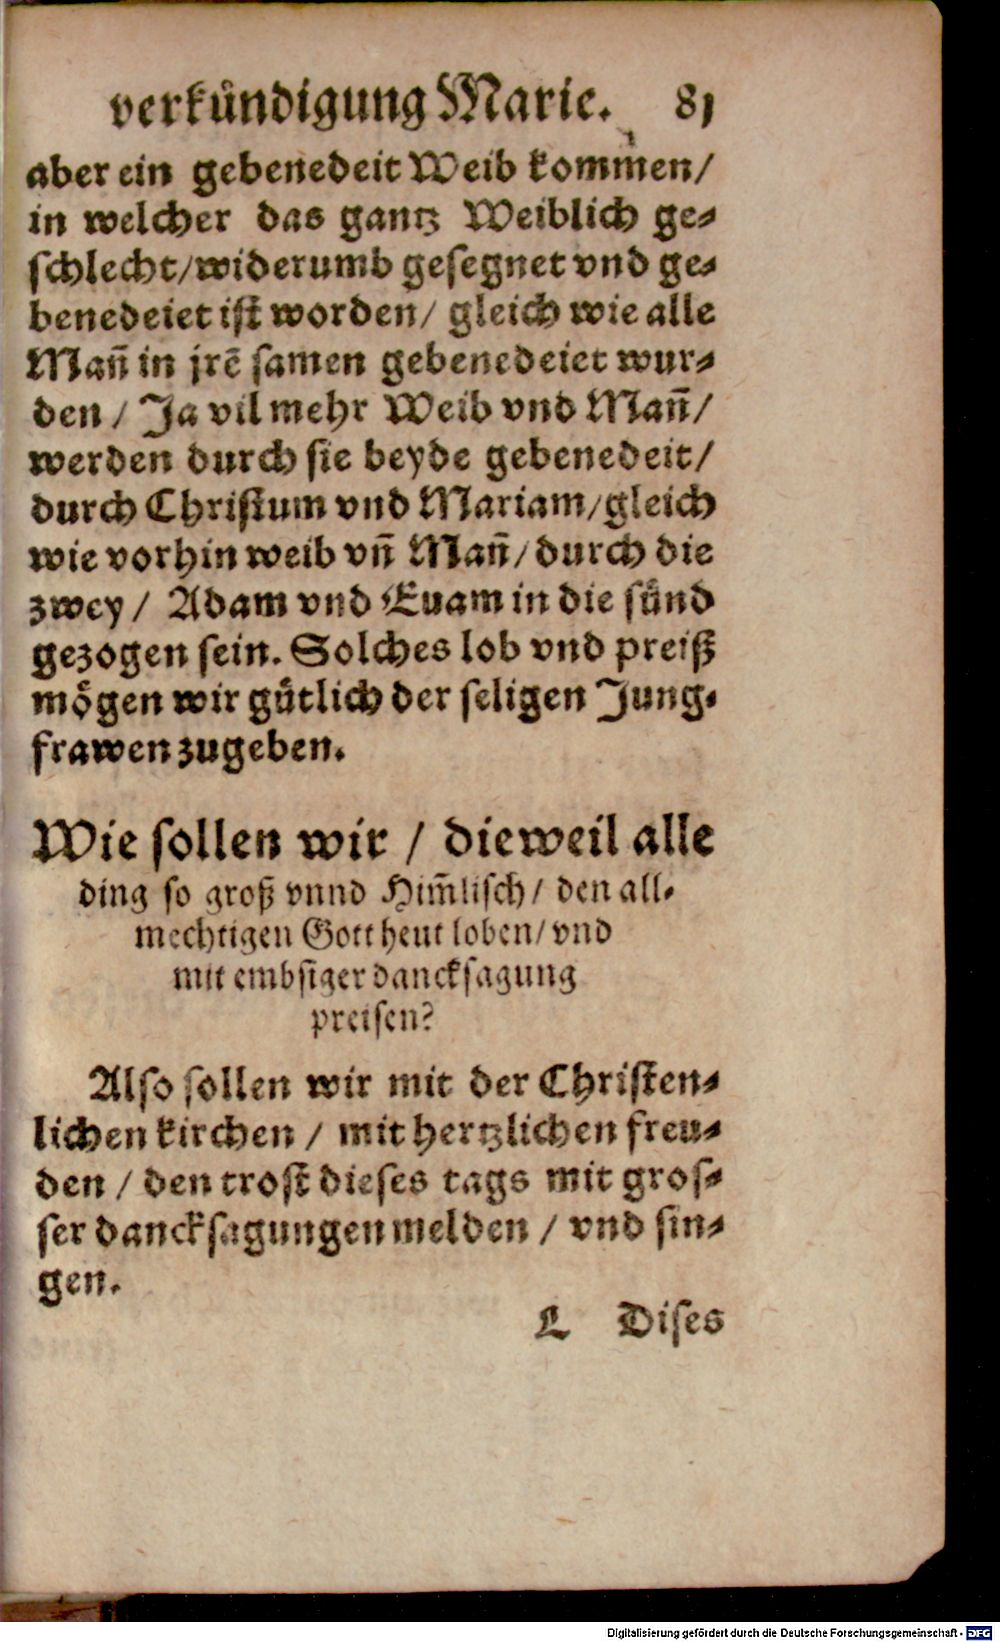 verkündigung Marie. 81
aber ein gebenedeit Weib kommen/
in welcher das gantz Weiblich ge-
schlecht/widerumb gesegnet vnd ge-
benedeiet ist worden/ gleich wie alle
Mañ in jrē samen gebenedeiet wur-
den / Ja vil mehr Weib vnd Mañ/
werden durch sie beyde gebenedeit/
durch Christum vnd Mariam/gleich
wie vorhin weib vñ Mañ/durch die
zwey / Adam vnd Euam in die sünd
gezogen sein. Solches lob vnd preiß
mögen wir gütlich der seligen Jung-
frawen zugeben.
Wie sollen wir / dieweil alle
ding so groß vnnd Him̃lisch/ den all-
mechtigen Gott heut loben/vnd
mit embsiger dancksagung
preisen?
Also sollen wir mit der Christen-
lichen kirchen / mit hertzlichen freu-
den / den trost dieses tags mit gros-
ser dancksagungen melden / vnd sin-
gen.
L Dises
Digitalisierung gefördert durch die Deutsche Forschungsgemeinschaft - DFG